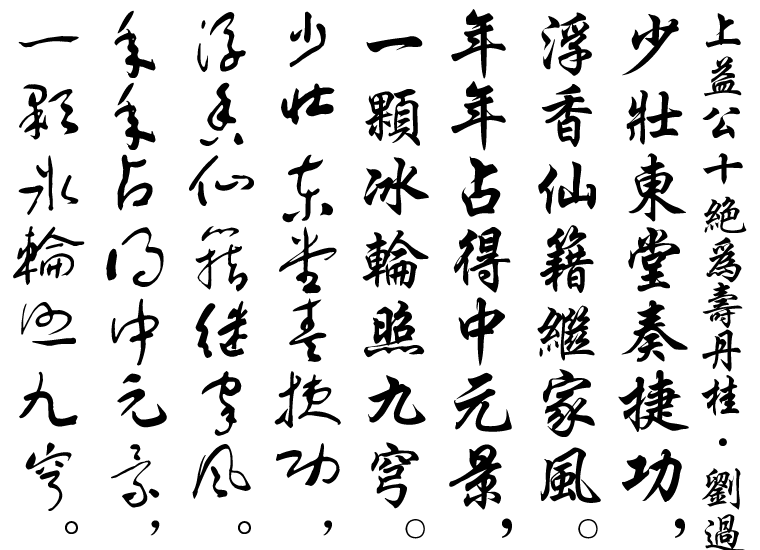 上益公十絕為壽丹桂·劉過
少壯東堂奏捷功，
浮香仙籍繼家風。
年年占得中元景，
一顆冰輪照九穹。
少壮东堂奏捷功，
浮香仙籍继家风。
年年占得中元景，
一顆冰輪照九穹。